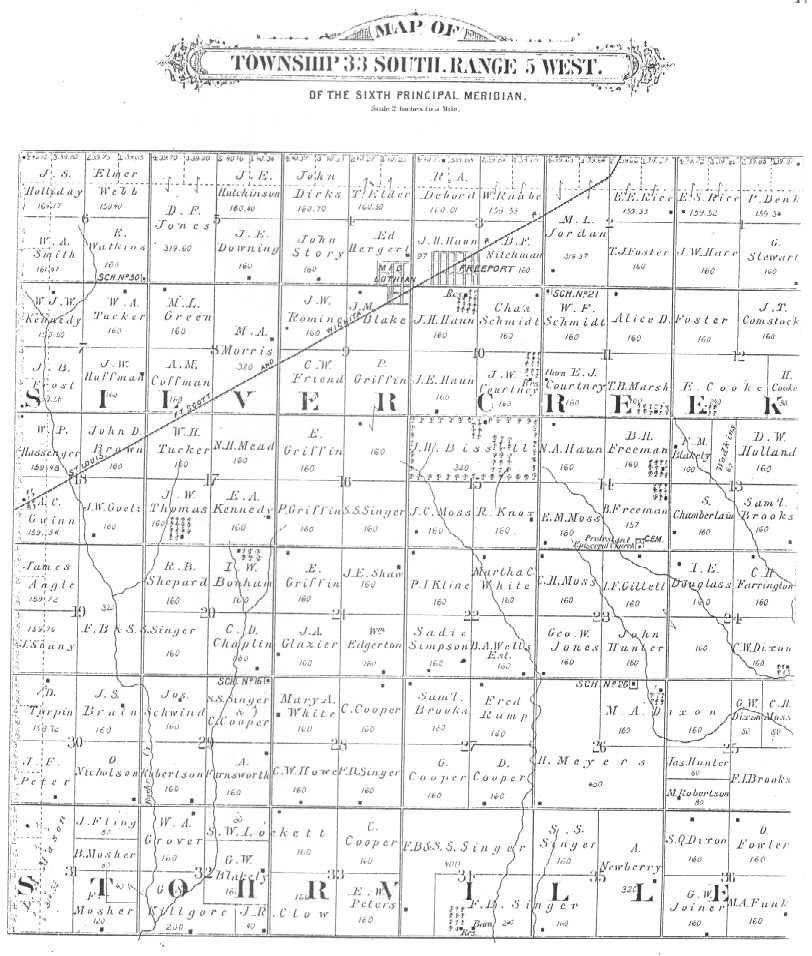 MAP OF
TOWNSHIP 33 SOUTH. RANGE 5 WEST.
OF THE SIXTH PRINCIPAL MERIDIAN.
Scale 2 Inches to a Mile.
J. S. Holliday
164.17
Elmer Webb
159.40
D. P. Jones
319.60
J. E. Hutchinson
160.40
John Dirks
160.70
T. Elder
160.50
R. A. Debord
160.01
W. Knabe
159.53
E. E. Rice
159.33
E. S. Rice
159.52
P. Denk
159.54
6
5
4
3
2
W. A. Smith
E. Watkins
160
SCH. No 50
J. E. Downing
160
John Story
160
Ed Hergert
MID LOTHIAN
J. H. Haun
97
FREEPORT
B. F. Nitchman
160
M. L. Jordan
319.37
T. J. Foster
160
J. W. Hare
160
G. Stewart
160
W. J. W. Kennedy
W. A. Tucker
160
M. L. Green
160
M. A. Morris
320
J. W. Romine
160
J. M. Blake
Res.
J. H. Haun
160
Chas Schmidt
160
SCH. No 21
W. F. Schmidt
160
Alice D. Foster
160
160
J. T. Comstock
160
7
8
9
10
11
12
J. B. Frost
J. W. Huffman
160
A. M. Coffman
160
C. W. Friend
160
P. Griffin
160
J. E. Haun
160
J. W. Courtney
160
Res.
Barn
E. J. Courtney
160
T. B. Marsh
160
E. Cooke
240
H. Cooke
80
SILVER CREEK
ST. LOUIS FT. SCOTT AND WICHITA R. R.
W. P. Hassenger
159.48
John D. Brown
160
W. H. Tucker
160
N. H. Mead
160
E. Griffin
160
160
J. W. Bissell
320
N. A. Haun
160
B. H. Freeman
160
N. M. Blakely
100
Watkins
60
D. W. Holland
160
18
17
16
15
14
13
A. C. Gwinn
159.56
J. W. Goetz
160
J. W. Thomas
160
E. A. Kennedy
160
P. Griffin
160
S. S. Singer
160
J. C. Moss
160
R. Knox
160
E. M. Moss
160
B. Freeman
157
Protestant Episcopal Church
CEM.
S. Chamberlain
160
Sam'l. Brooks
160
James Angle
159.72
R. B. Shepard
160
I. W. Bonham
160
E. Griffin
160
J. E. Shaw
160
P. I. Kline
160
Martha C. White
160
C. H. Moss
160
I. F. Gillett
160
I. E. Douglass
160
C. H. Farrington
160
320
19
20
21
22
23
24
159.76
F. B & S. S. Singer
160
C. D. Chaplin
160
J. A. Glazier
160
Wm Edgerton
160
Sadie Simpson
160
B. A. Wells Est.
160
Geo. W. Jones
160
John Hunter
160
160
C. W. Dixon
160
D. Turpin
159.72
J. S. Brain
160
Jos. Schwind
160
SCH. No 16
S. S. Singer & C. Cooper
160
Mary A. White
160
C. Cooper
160
Sam'l. Brooks
160
Fred Rump
160
SCH. No 26
M. A. Dixon
160
160
G. W. Dixon
80
C. H. Moss
80
30
29
28
27
26
25
J. E. Peter
O. Nicholson
160
Robertson
160
A. Farnsworth
160
C. W. Howe
160
F. B. Singer
160
G. Cooper
160
D. Cooper
160
H. Meyers
480
Jas Hunter
80
M. Robertson
80
F. I. Brooks
160
Mason
J. Fling
80
B. Mosher
80
W. A. Grover
160
S. W. Lockett
80
G. W. Blakely
C. Cooper
160
F. B & S. S. Singer
400
S. S. Singer
160
A. Newberry
320
S. Q. Dixon
160
O. Fowler
160
31
32
33
35
36
Mosher
120
Killgore
200
J. R. Clow
40
160
E. W. Peters
160
F. B. Singer
Barn
240
Res.
160
G. W. Joiner
160
M. A. Funk
160
STOHRVILLE